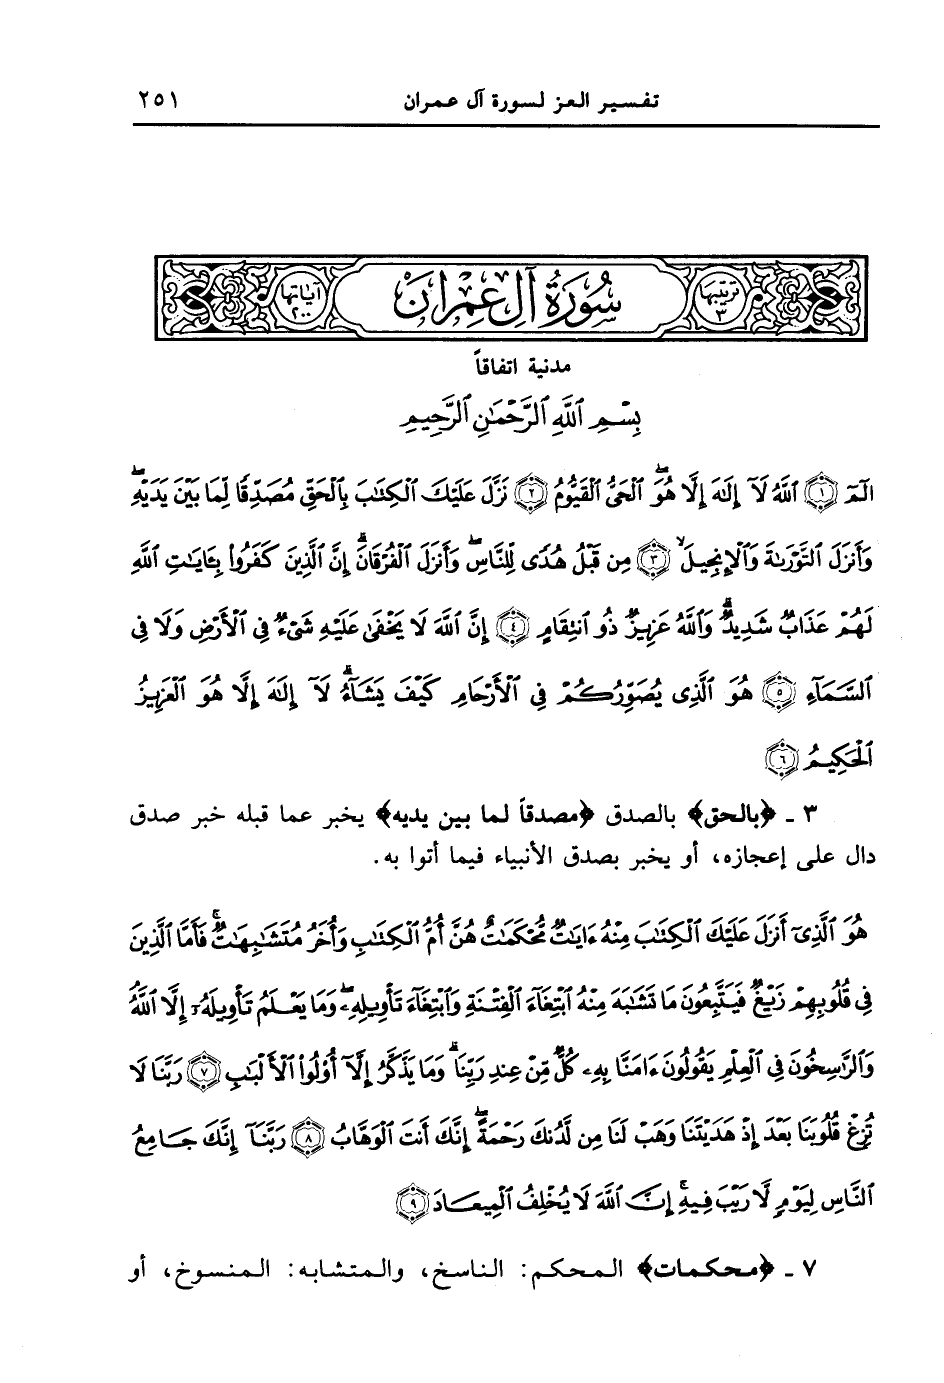 تفسير العز لسورة آل عمران ٢٥١
ترتيبها ٣ سُورَةُ آلِ عِمْرَان آياتها ٢٠٠
مدنية اتفاقاً
بِسْمِ ٱللَّهِ ٱلرَّحْمَٰنِ ٱلرَّحِيمِ
الٓمٓ ١ ٱللَّهُ لَآ إِلَٰهَ إِلَّا هُوَ ٱلْحَىُّ ٱلْقَيُّومُ ٢ نَزَّلَ عَلَيْكَ ٱلْكِتَٰبَ بِٱلْحَقِّ مُصَدِّقًا لِّمَا بَيْنَ يَدَيْهِ
وَأَنزَلَ ٱلتَّوْرَىٰةَ وَٱلْإِنجِيلَ ٣ مِن قَبْلُ هُدًى لِّلنَّاسِ وَأَنزَلَ ٱلْفُرْقَانَ إِنَّ ٱلَّذِينَ كَفَرُوا۟ بِـَٔايَٰتِ ٱللَّهِ
لَهُمْ عَذَابٌ شَدِيدٌ وَٱللَّهُ عَزِيزٌ ذُو ٱنتِقَامٍ ٤ إِنَّ ٱللَّهَ لَا يَخْفَىٰ عَلَيْهِ شَىْءٌ فِى ٱلْأَرْضِ وَلَا فِى
ٱلسَّمَآءِ ٥ هُوَ ٱلَّذِى يُصَوِّرُكُمْ فِى ٱلْأَرْحَامِ كَيْفَ يَشَآءُ لَآ إِلَٰهَ إِلَّا هُوَ ٱلْعَزِيزُ
ٱلْحَكِيمُ ٦
٣ ـ ﴿بالحق﴾ بالصدق ﴿مصدقاً لما بين يديه﴾ يخبر عما قبله خبر صدق
دال على إعجازه، أو يخبر بصدق الأنبياء فيما أتوا به.
هُوَ ٱلَّذِىٓ أَنزَلَ عَلَيْكَ ٱلْكِتَٰبَ مِنْهُ ءَايَٰتٌ مُّحْكَمَٰتٌ هُنَّ أُمُّ ٱلْكِتَٰبِ وَأُخَرُ مُتَشَٰبِهَٰتٌ فَأَمَّا ٱلَّذِينَ
فِى قُلُوبِهِمْ زَيْغٌ فَيَتَّبِعُونَ مَا تَشَٰبَهَ مِنْهُ ٱبْتِغَآءَ ٱلْفِتْنَةِ وَٱبْتِغَآءَ تَأْوِيلِهِۦ وَمَا يَعْلَمُ تَأْوِيلَهُۥٓ إِلَّا ٱللَّهُ
وَٱلرَّٰسِخُونَ فِى ٱلْعِلْمِ يَقُولُونَ ءَامَنَّا بِهِۦ كُلٌّ مِّنْ عِندِ رَبِّنَا وَمَا يَذَّكَّرُ إِلَّآ أُو۟لُوا۟ ٱلْأَلْبَٰبِ ٧ رَبَّنَا لَا
تُزِغْ قُلُوبَنَا بَعْدَ إِذْ هَدَيْتَنَا وَهَبْ لَنَا مِن لَّدُنكَ رَحْمَةً إِنَّكَ أَنتَ ٱلْوَهَّابُ ٨ رَبَّنَآ إِنَّكَ جَامِعُ
ٱلنَّاسِ لِيَوْمٍ لَّا رَيْبَ فِيهِ إِنَّ ٱللَّهَ لَا يُخْلِفُ ٱلْمِيعَادَ ٩
٧ ـ ﴿محكمات﴾ المحكم: الناسخ، والمتشابه: المنسوخ، أو